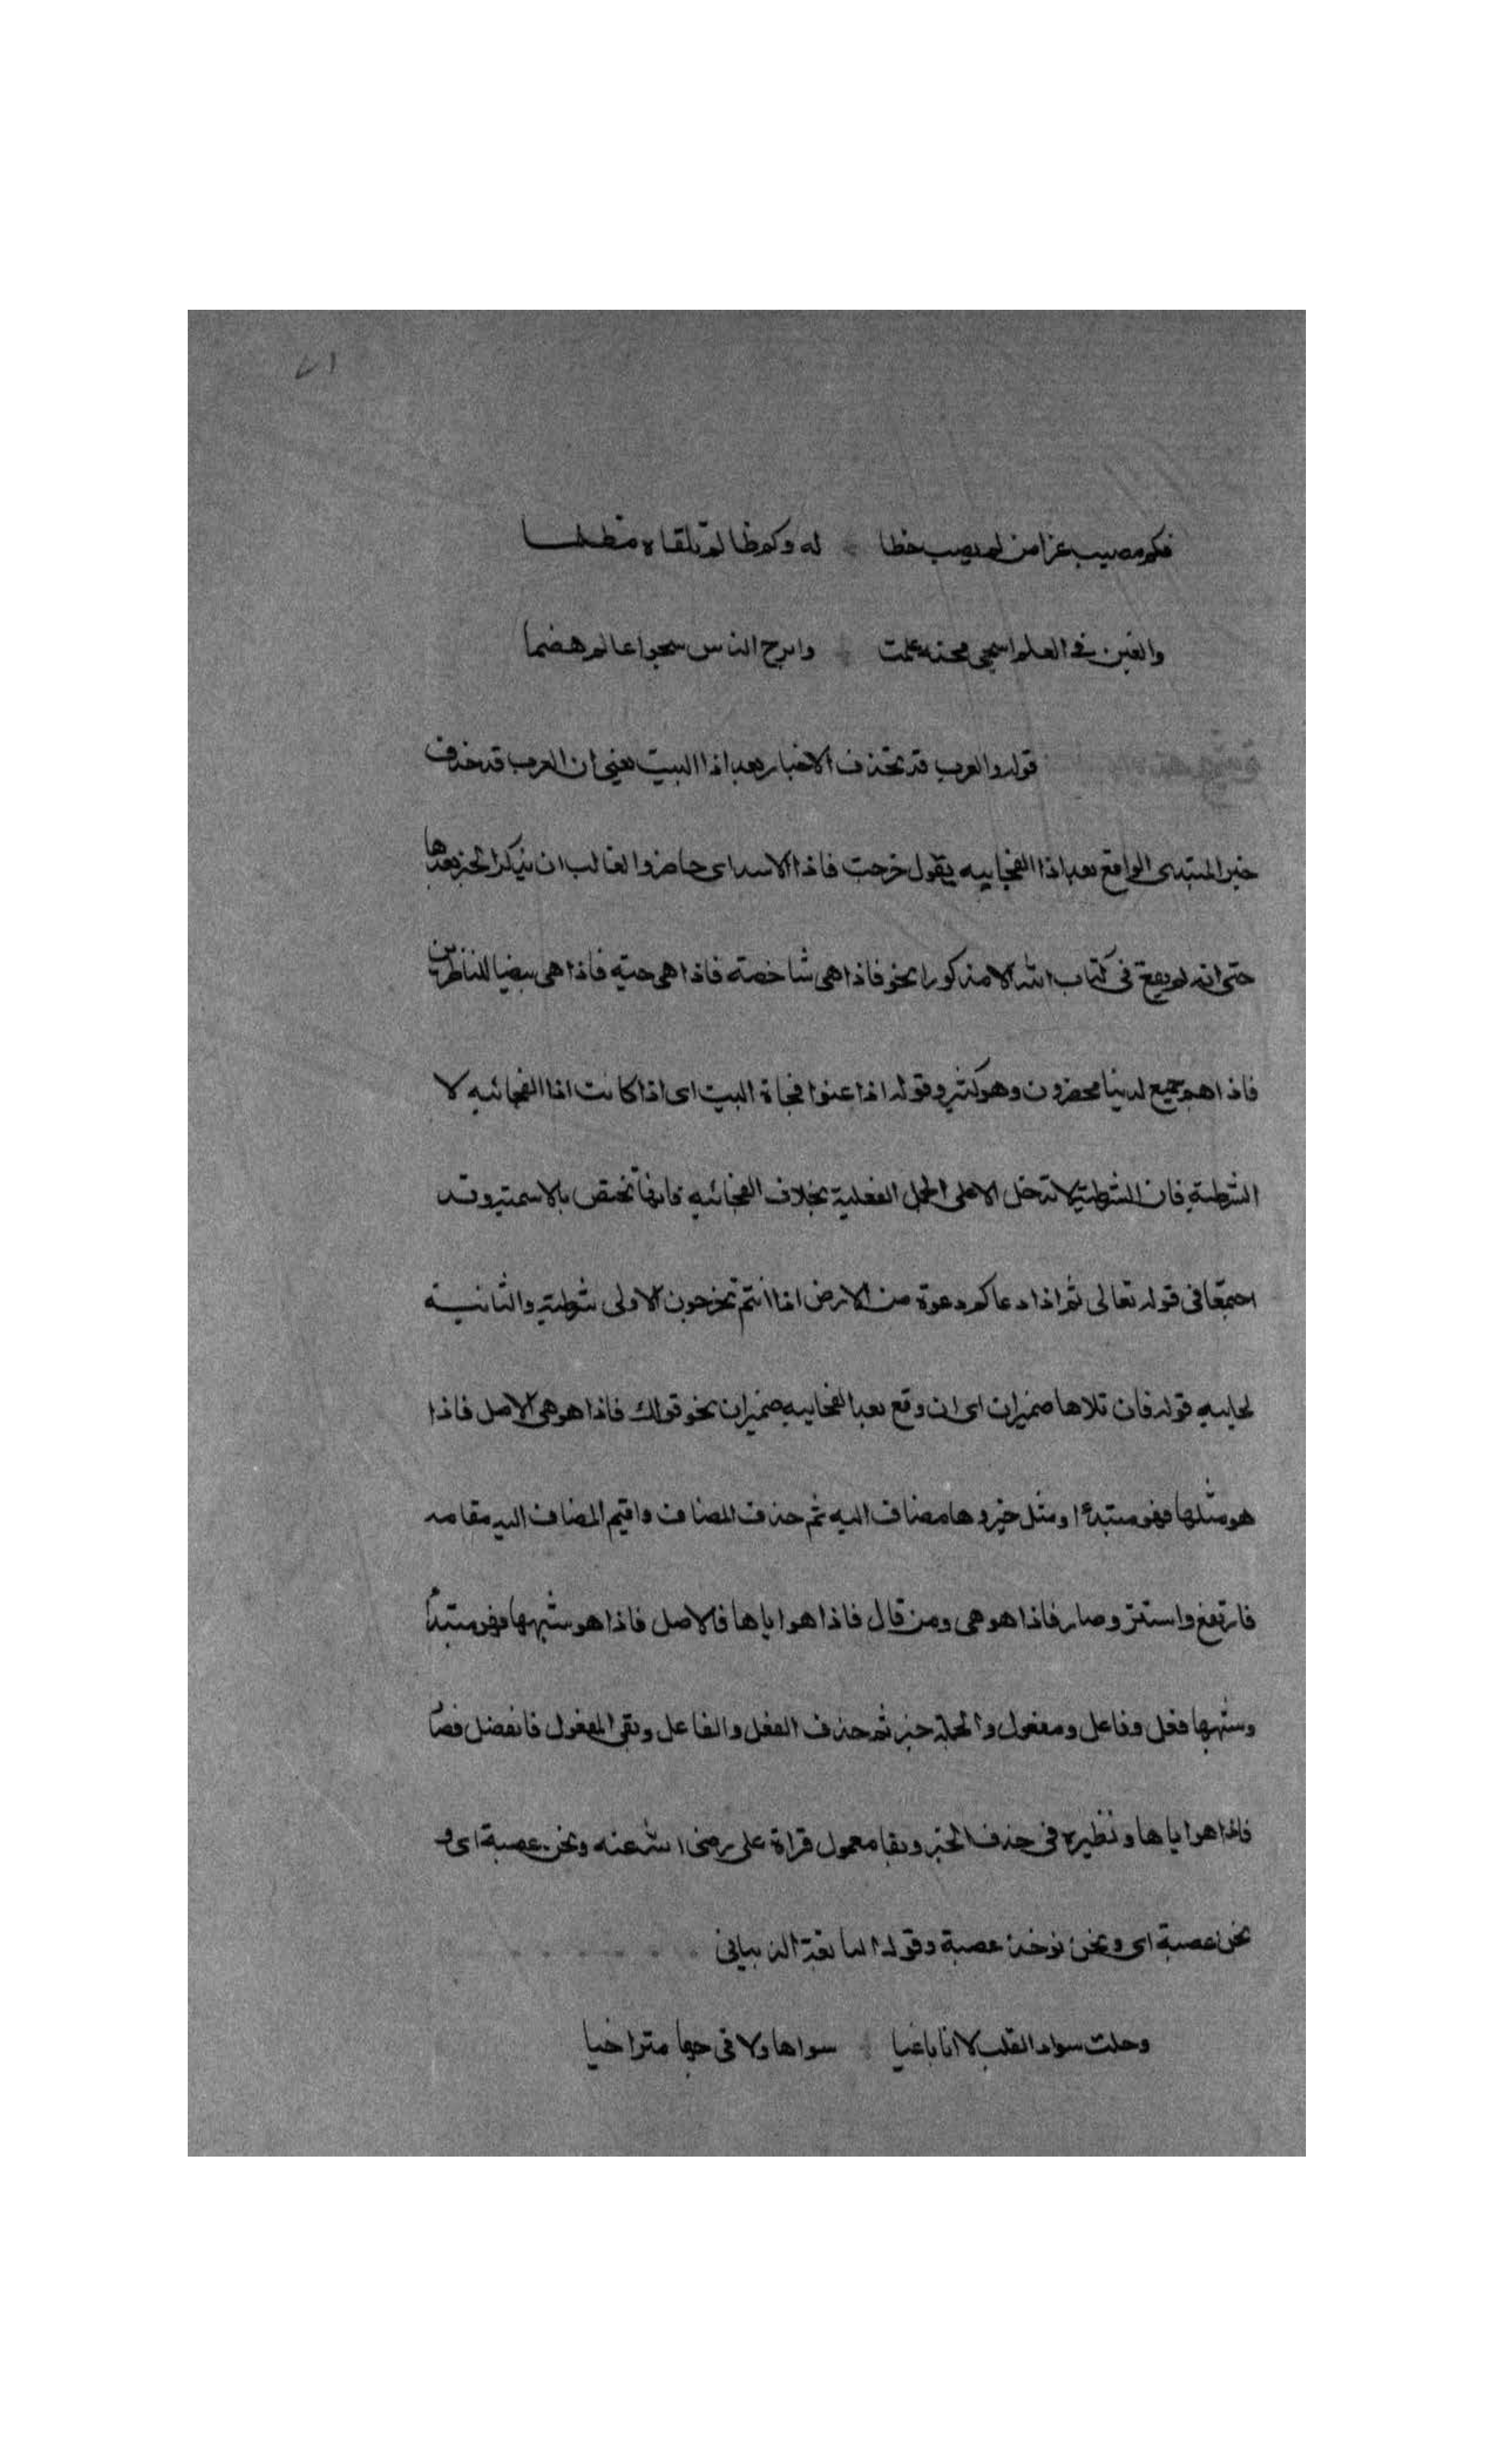 فكم مصيب عزا من لم يصب خطا له وكم ظالم تلقاه مظلما
والغبن في العلم اشجى محنة علمت وابرح الناس شجوا عالم هضما
قوله والعرب قد تحذف الاخبار بعد اذا البيت يعني ان العرب قد حذف
خبر المبتدى الواقع بعد اذا الفجاييه يقول خرجت فاذا الاسد اى حاضر والغالب ان يذكر الخبر بعدها
حتى انه لم يقع في كتاب الله الا مذكورا نحو فاذا هى شاخصة فاذا هى حية فاذا هى بيضا للناظرين
فاذا هم جميع لدينا محضرون وهو كثير وقوله اذا عنوا فجاة البيت اى اذا كانت اذا الفجائيه لا
الشرطية فان الشرطية لا تدخل الا على الجمل الفعلية بخلاف الفجائيه فانها تختص بالاسمية وقد
اجتمعا في قوله تعالى ثم اذا دعاكم دعوة من الارض اذا انتم تخرجون الاولى شرطية والثانية
لجاييه قوله فان تلاها ضميران اى ان وقع بعد الفجاييه ضميران نحو قولك فاذا هو هى الاصل فاذا
هو مثلها فهو مبتدءا ومثل خبر وها مضاف اليه ثم حذف المضاف واقيم المضاف اليه مقامه
فارتفع واستتر وصار فاذا هو هى ومن قال فاذا هو اياها فالاصل فاذا هو شبهها فهو مبتدأ
وشبهها فعل وفاعل ومفعول والجملة خبر ثم حذف الفعل والفاعل وبقى المفعول فانفصل فصا
فاذا هو اياها ونظيره في حذف الخبر وبقا معمول قراة على رضى الله عنه ونحن عصبة اى و
نحن عصبة اى ونحن نوخذ عصبة وقوله النابغة الذبيانى
وحلت سواد القلب لا انا باغيا سواها ولا في حبها متراخيا